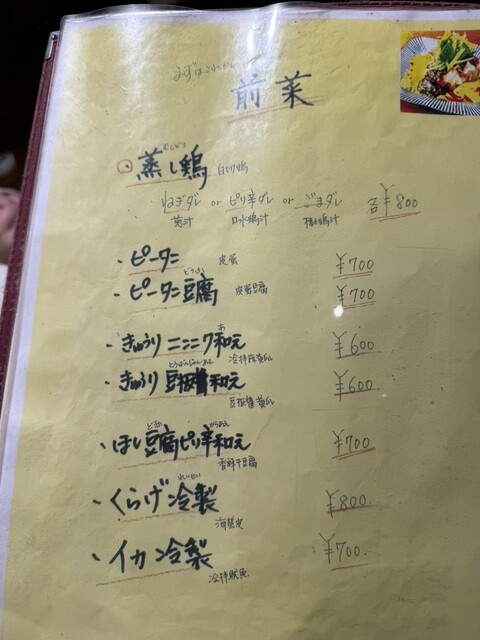 まずはこれから
前菜
むしどり
蒸し鶏 白切鶏
ねぎダレ or ピリ辛ダレ or ごまダレ 各¥800
葱汁 口水鶏汁
・ピータン 皮蛋 ¥700
・ピータン豆腐 皮蛋豆腐 ¥700
・きゅうりニンニク和え ¥600
冷拌蒜黄瓜
・きゅうり豆板醤和え ¥600
豆板醤黄瓜
・ほし豆腐ピリ辛和え ¥700
香鮮干豆腐
れいせい
・くらげ冷製 ¥800.
海蜇皮
・イカ冷製 ¥700.
冷拌鱿魚